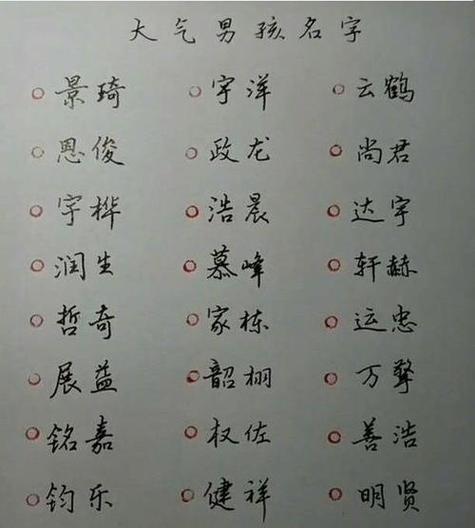 大气男孩名字
景琦 宇洋 云鹤
恩俊 政龙 尚君
宇桦 浩晨 达宇
润生 慕峰 轩赫
哲奇 家栋 运忠
展益 韶栩 万擎
铭嘉 权佐 善浩
钧乐 健祥 明贤